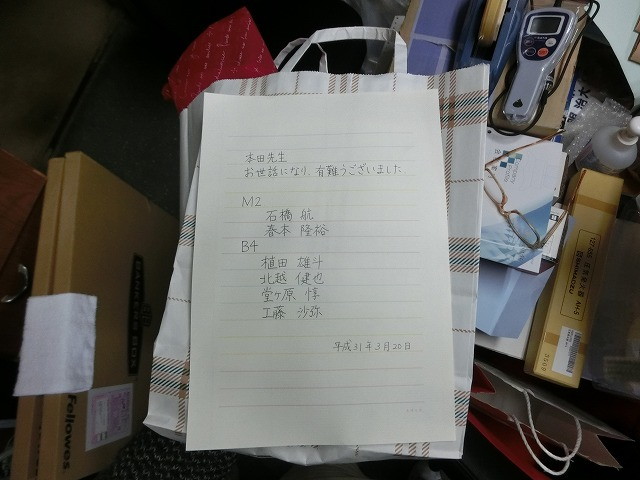 本田先生
お世話になり、有難うございました
M2
石橋 航
春木 隆裕
B4
植田 雄斗
北越 健也
堂ヶ原 惇
工藤 沙弥
平成31年3月20日
BANKERS BOX
Fellowes